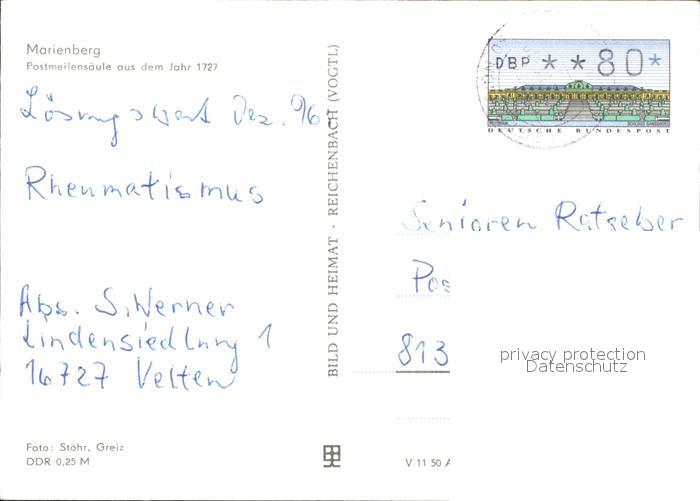 Marienberg
Postmeilensäule aus dem Jahr 1727
Lösungswort Dez. 96
Rheumatismus
Abs. S. Werner
Lindensiedlung 1
16727 Velten
Foto: Stöhr, Greiz
DDR 0,25 M
BILD UND HEIMAT · REICHENBACH (VOGTL)
DBP * * 80 *
DEUTSCHE BUNDESPOST
Senioren Ratgeber
Pos
813
privacy protection
Datenschutz
V 11 50 A